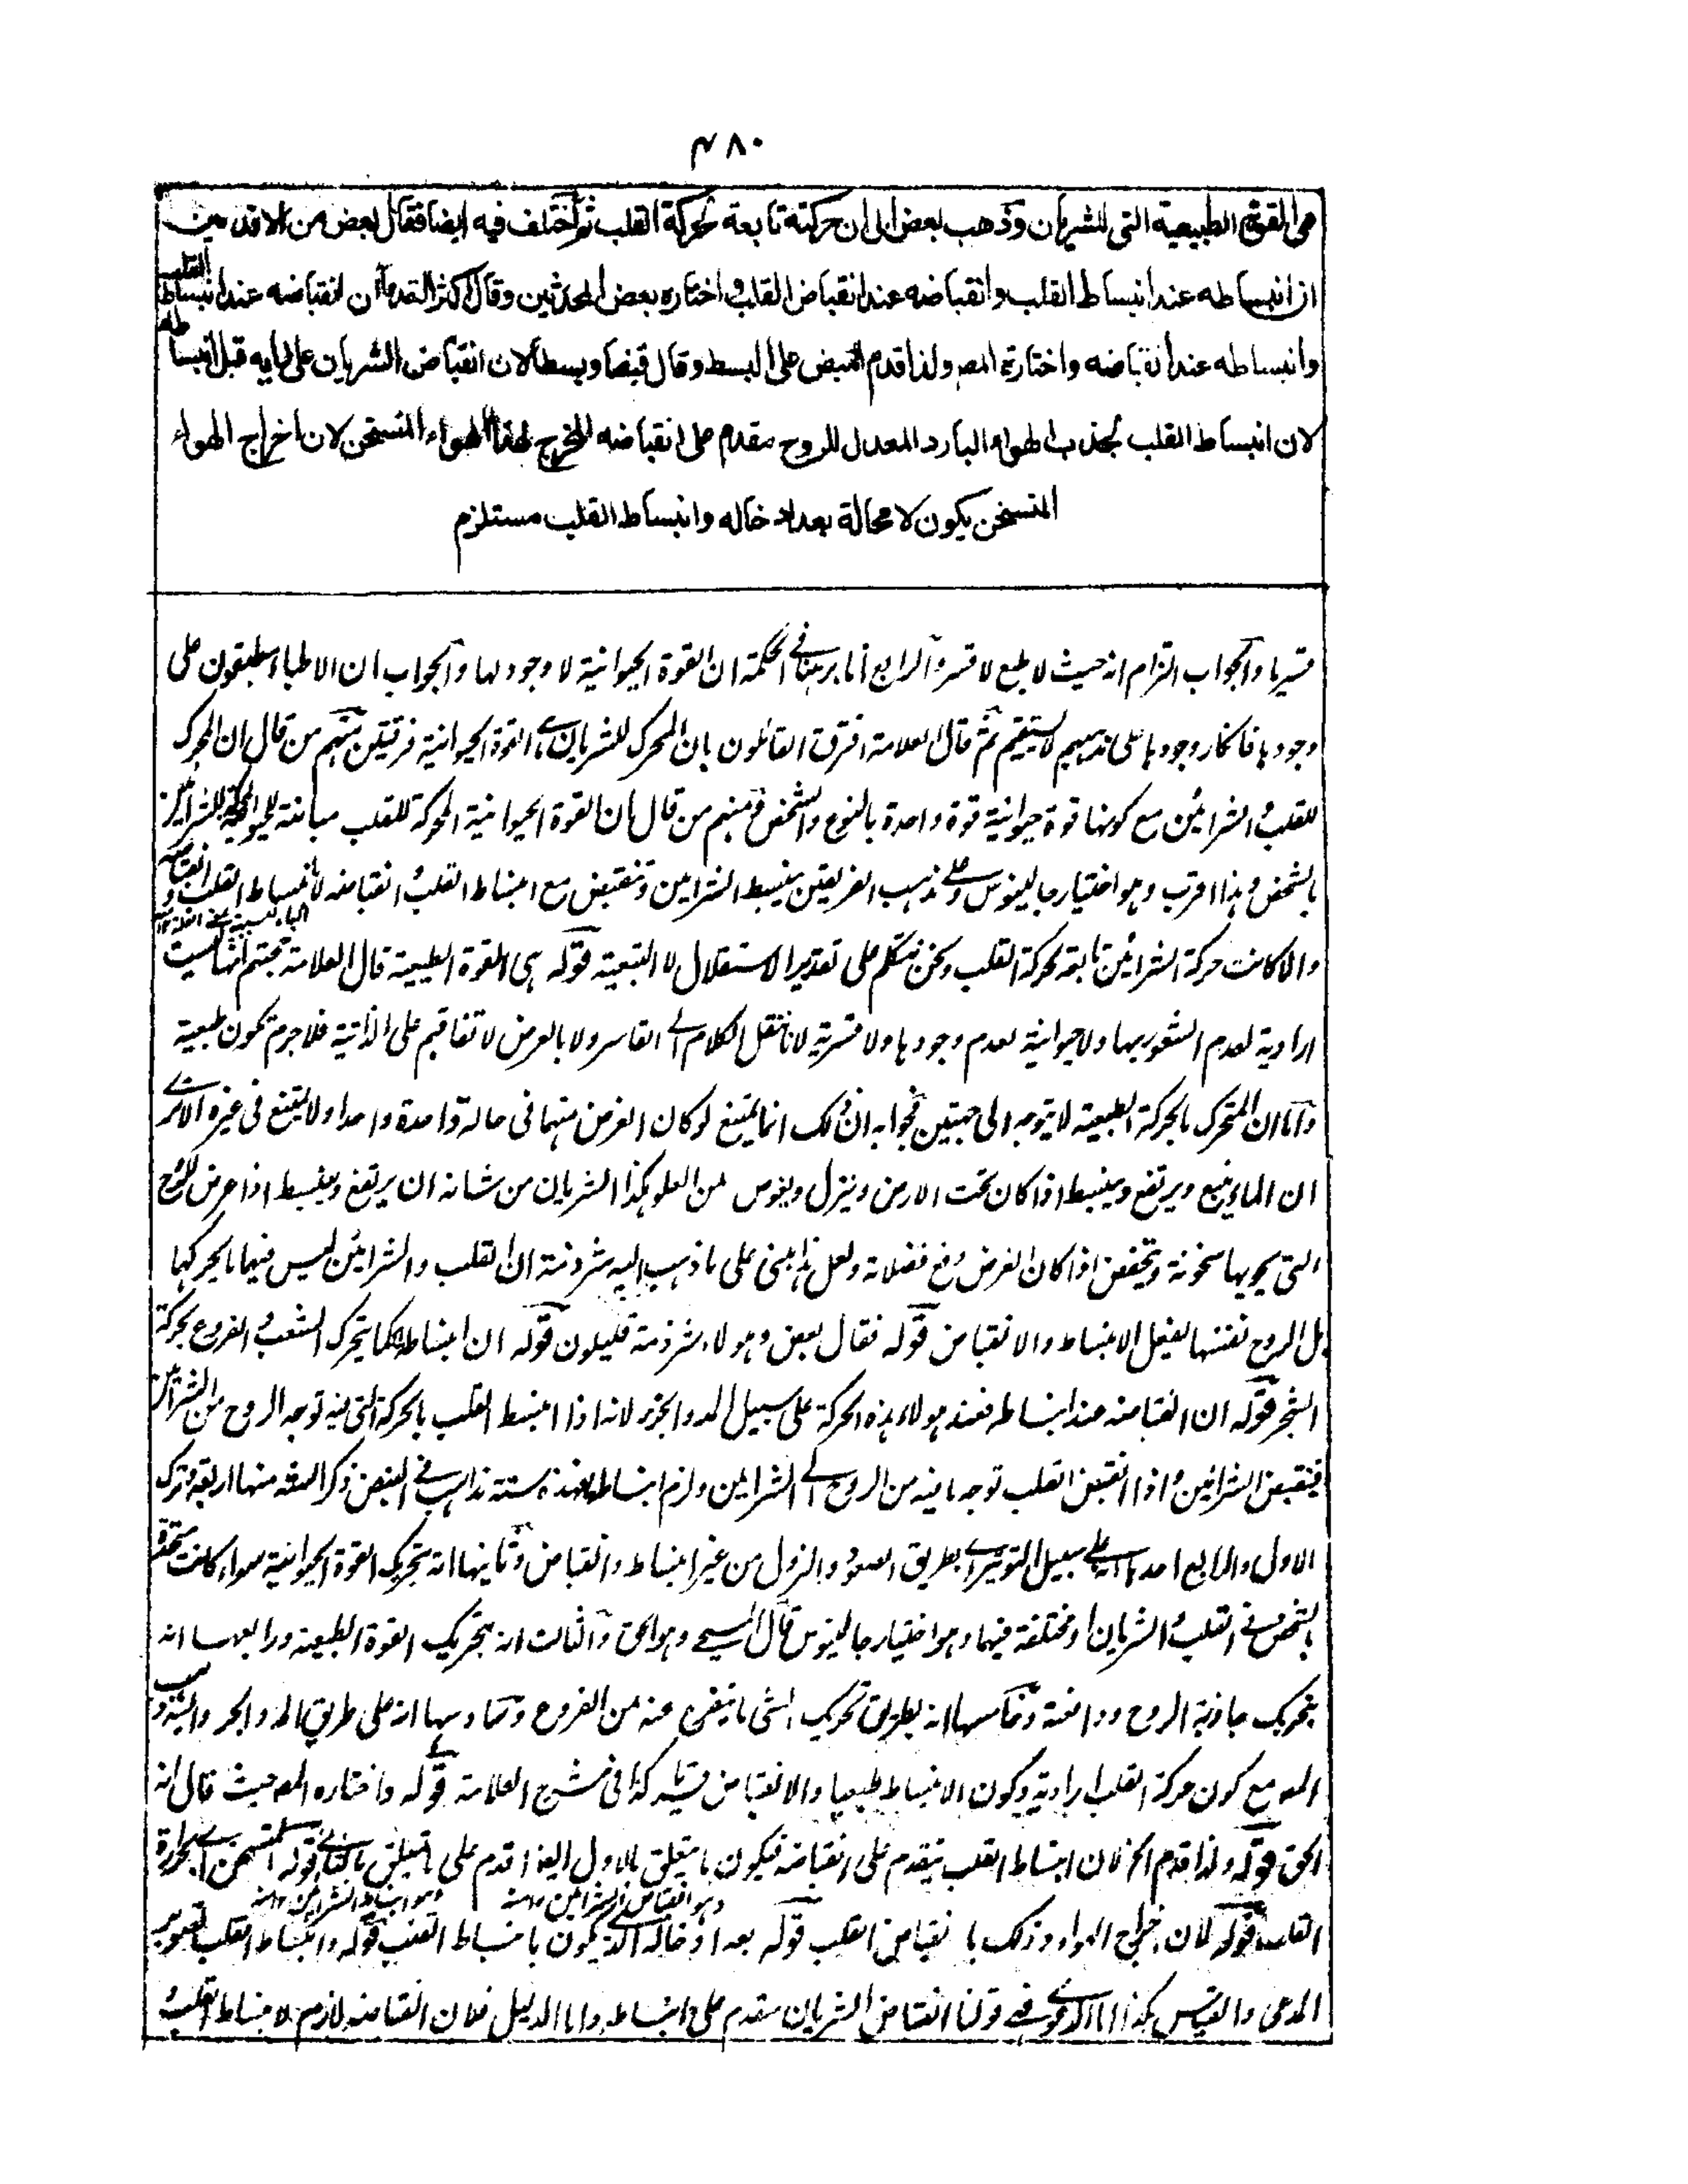 ۴۸۰
هي القوة الطبيعية التي للشريان وذهب بعض الى ان حركته تابعة لحركة القلب ثم اختلف فيه ايضا فقال بعض من الاقدمين
ان انبساطه عند انبساط القلب وانقباضه عند انقباض القلب واختاره بعض المحدثين وقال اكثر القدماء ان انقباضه عند انبساط القلب
وانبساطه عند انقباضه واختاره المص ولذا قدم القبض على البسط وقال قبضا وبسطا لان انقباض الشريان على رايه قبل انبساطه
لان انبساط القلب لجذب الهواء البارد المعدل للروح مقدم على انقباضه المخرج لهذا الهواء المتسخن لان اخراج الهواء
المتسخن يكون لا محالة بعد ادخاله وانبساط القلب مستلزم
قسريا والجواب التزام انه حيث لا طبع لا قسر والرابع انا برهنا في الحكمة ان القوة الحيوانية لا وجود لها والجواب ان الاطباء مطبقون على
وجودها فانكار وجودها على مذهبهم لا يستقيم ثم قال العلامة افترق القائلون بان المحرك للشريان هي القوة الحيوانية فرقتين منهم من قال ان المحرك
للقلب والشرائين مع كونها قوة حيوانية قوة واحدة بالنوع والشخص ومنهم من قال بان القوة الحيوانية المحركة للقلب مباينة للحيوانية المحركة للشرائين
بالشخص وهذا اقرب وهو اختيار جالينوس وعلى مذهب الفريقين ينبسط الشرائين وتنقبض مع انبساط القلب وانقباضه لا بانبساط القلب وانقباضه
والا كانت حركة الشرائين تابعة لحركة القلب ونحن نتكلم على تقدير الاستقلال لا التبعية قوله هي القوة الطبيعية قال العلامة حجتهم انها ليست
ارادية لعدم الشعور بها ولا حيوانية لعدم وجودها ولا قسرية لانا ننقل الكلام الى القاسر ولا بالعرض لاتفاقهم على الذاتية فلا جرم تكون طبيعية
واما ان المتحرك بالحركة الطبيعية لا يتوجه الى جهتين فجوابه ان ذلك انما يمتنع لو كان الغرض منهما في حالة واحدة واحدا ولا يمتنع في غيره الا ترى
ان الماء ينبع ويرتفع وينبسط اذا كان تحت الارض وينزل ويغوص من العلو هكذا الشريان من شانه ان يرتفع وينبسط اذا عرض للروح
التي يحويها سخونة وينخفض اذا كان الغرض دفع فضلاته ولعل هذا مبني على ما ذهب اليه شرذمة ان القلب والشرائين ليس فيهما ما يحركها
بل الروح نفسها يفعل الانبساط والانقباض قوله فقال بعض وهولاء شرذمة قليلون قوله ان انبساطه كما يتحرك الشعب والفروع بحركة
الشجر قوله ان انقباضه عند انبساطه فعند هولاء هذه الحركة على سبيل المد والجزر لانه اذا انبسط القلب بالحركة التي فيه توجه الروح من الشرائين
فينقبض الشرائين واذا انقبض القلب توجه ما فيه من الروح الى الشرائين ولزم انبساطها فهذه ستة مذاهب في النبض ذكر المص منها اربعة وترك
الاول والرابع احدها انه على سبيل التوتير اي بطريق الصعود والنزول من غير انبساط وانقباض وثانيها انه بتحريك القوة الحيوانية سواء كانت متحدة
بالشخص في القلب والشريان او مختلفة فيهما وهو اختيار جالينوس قال المسيحي وهو الحق والثالث انه بتحريك القوة الطبيعية ورابعها انه
بتحريك جاذبة الروح ودافعته وخامسها انه بطريق تحريك الشيء ما يتفرع عنه من الفروع وسادسها انه على طريق المد والجزر
مع كون حركة القلب ارادية وكون الانبساط طبيعيا والانقباض قسريا كذا في شرح العلامة قوله واختاره المص حيث قال انه
الحق قوله ولذا قدم الخ لان انبساط القلب يتقدم على انقباضه فيكون ما يتعلق بالاول ايضا اقدم على ما يتعلق بالثاني قوله المتسخن اي بحرارة
وهو انقباض الشرائين ١٢ منه وهو انبساط الشرائين ١٢ منه
القلب قوله لان اخراج الهواء وذلك بانقباض القلب قوله بعد ادخاله الذي يكون بانبساط القلب قوله وانبساط القلب تصوير
المدعى والقياس هكذا اما الدعوى فهي قولنا انقباض الشريان مقدم على انبساطه واما الدليل فلان انقباضه لازم لانبساط القلب و